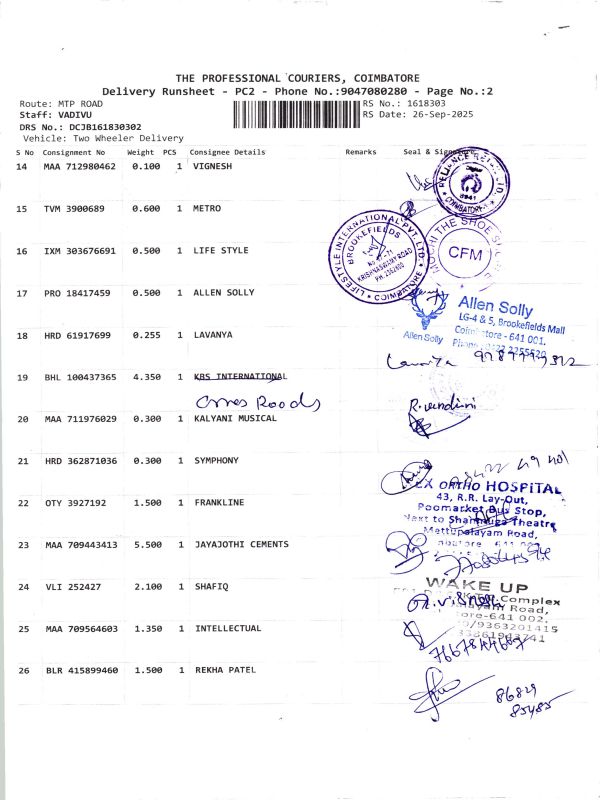 THE PROFESSIONAL COURIERS, COIMBATORE
Delivery Runsheet - PC2 - Phone No.:9047080280 - Page No.:2
Route: MTP ROAD
Staff: VADIVU
DRS No.: DCJB161830302
Vehicle: Two Wheeler Delivery
RS No.: 1618303
RS Date: 26-Sep-2025
S No Consignment No Weight PCS Consignee Details Remarks Seal & Signature
14 MAA 712980462 0.100 1 VIGNESH
RELIANCE RETAIL LTD.
COIMBATORE
15 TVM 3900689 0.600 1 METRO
MOCHI THE SHOE
CFM
16 IXM 303676691 0.500 1 LIFE STYLE
LIFESTYLE INTERNATIONAL PVT. LTD.
BROOKEFIELDS
KRISHNASWAMY ROAD
COIMBATORE
17 PRO 18417459 0.500 1 ALLEN SOLLY
Allen Solly
Allen Solly
LG-4 & 5, Brookefields Mall
Coimbatore - 641 001.
18 HRD 61917699 0.255 1 LAVANYA
Lavanya
19 BHL 100437365 4.350 1 KBS INTERNATIONAL
Roads
20 MAA 711976029 0.300 1 KALYANI MUSICAL
21 HRD 362871036 0.300 1 SYMPHONY
22 OTY 3927192 1.500 1 FRANKLINE
ORTHO HOSPITAL
43, R.R. Lay-Out,
Poomarket Bus Stop,
Next to Shanmuga Theatre
Mettupalayam Road,
23 MAA 709443413 5.500 1 JAYAJOTHI CEMENTS
24 VLI 252427 2.100 1 SHAFIQ
WAKE UP
Complex
Road,
641 002.
9363201415
25 MAA 709564603 1.350 1 INTELLECTUAL
26 BLR 415899460 1.500 1 REKHA PATEL
86829
85485